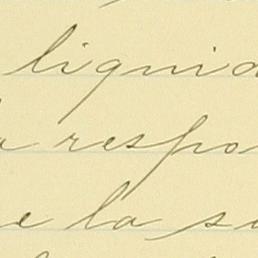 liquid
a respo
e la so